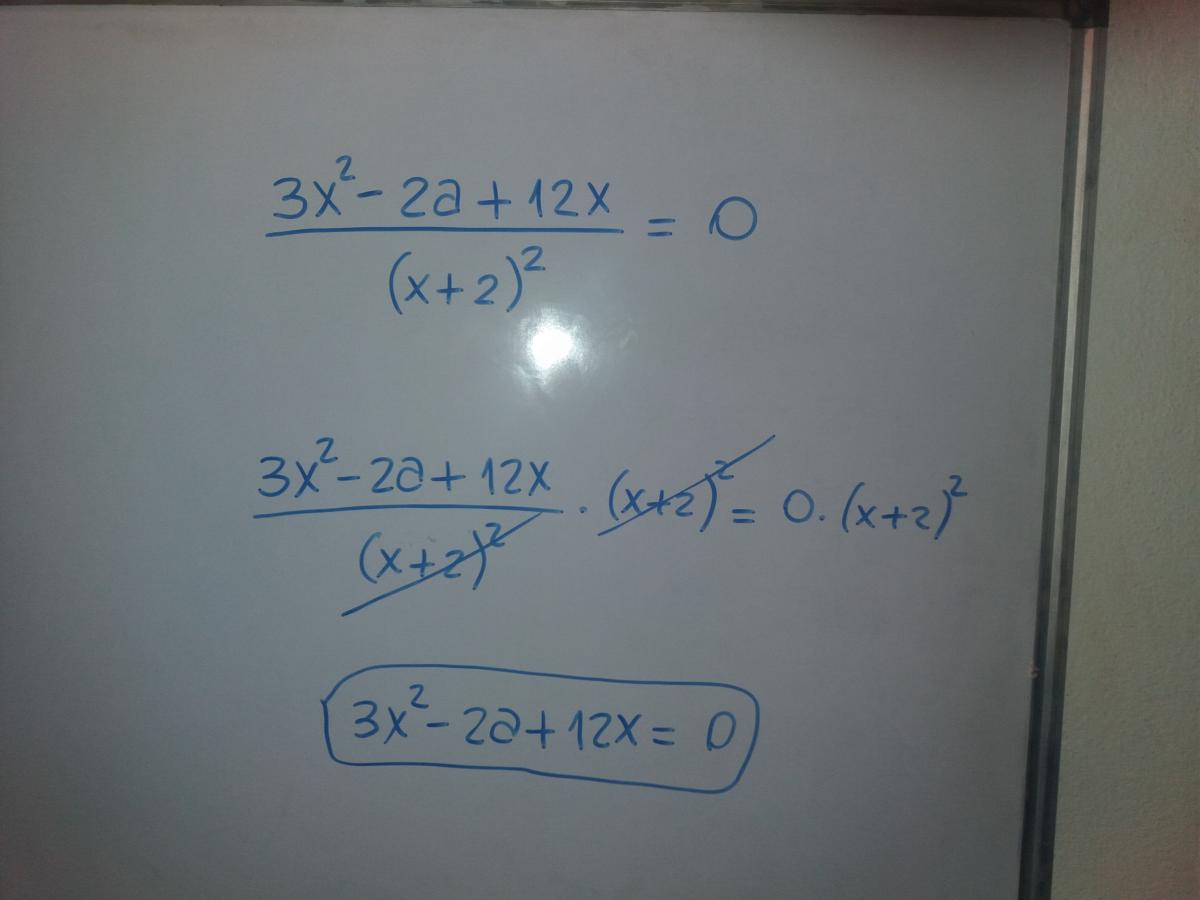 (3x² - 2a + 12x) / (x+2)² = 0
(3x² - 2a + 12x) / (x+2)² · (x+2)² = 0 · (x+2)²
3x² - 2a + 12x = 0